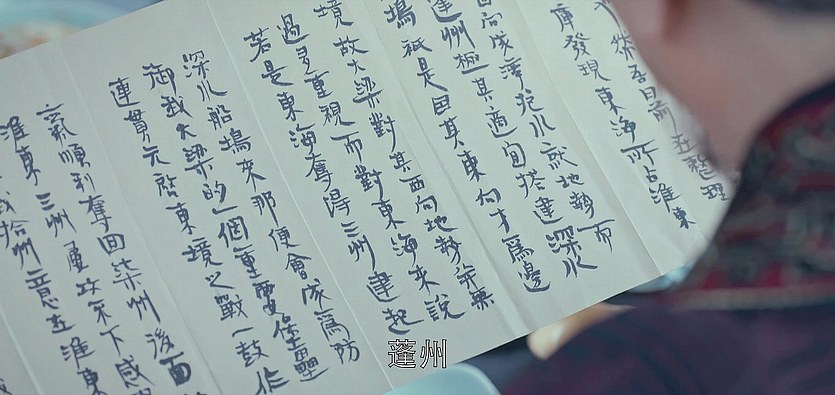 日前在整理
庫發現東海所占淮東
水就地勢而
州極其適宜搭建深水
塢祇是因其東向才為邊
境故大梁對其西向地勢並無
過多重視而對東海來說
若是東海奪得三州建起
深水船塢來那便會成為防
御我大梁的一個重要堡壘
連貫元啓東境之戰一鼓作
氣順利奪回柒州後面
淮東三州屢攻不下感
拾州意在淮東
蓬州